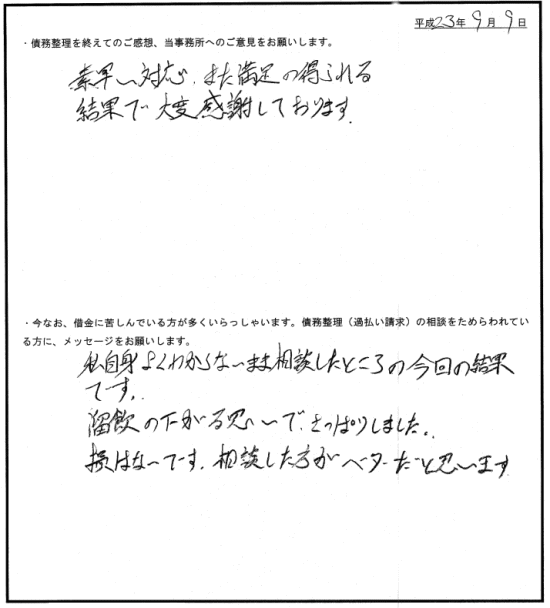 平成23年9月9日
・債務整理を終えてのご感想、当事務所へのご意見をお願いします。
素早い対応、また満足の得られる
結果で大変感謝しております。
・今なお、借金に苦しんでいる方が多くいらっしゃいます。債務整理（過払い請求）の相談をためらわれてい
る方に、メッセージをお願いします。
私自身よくわからないまま相談したところの今回の結果
です。
溜飲の下がる思いで、さっぱりしました。
損はないです。相談した方がベターだと思います